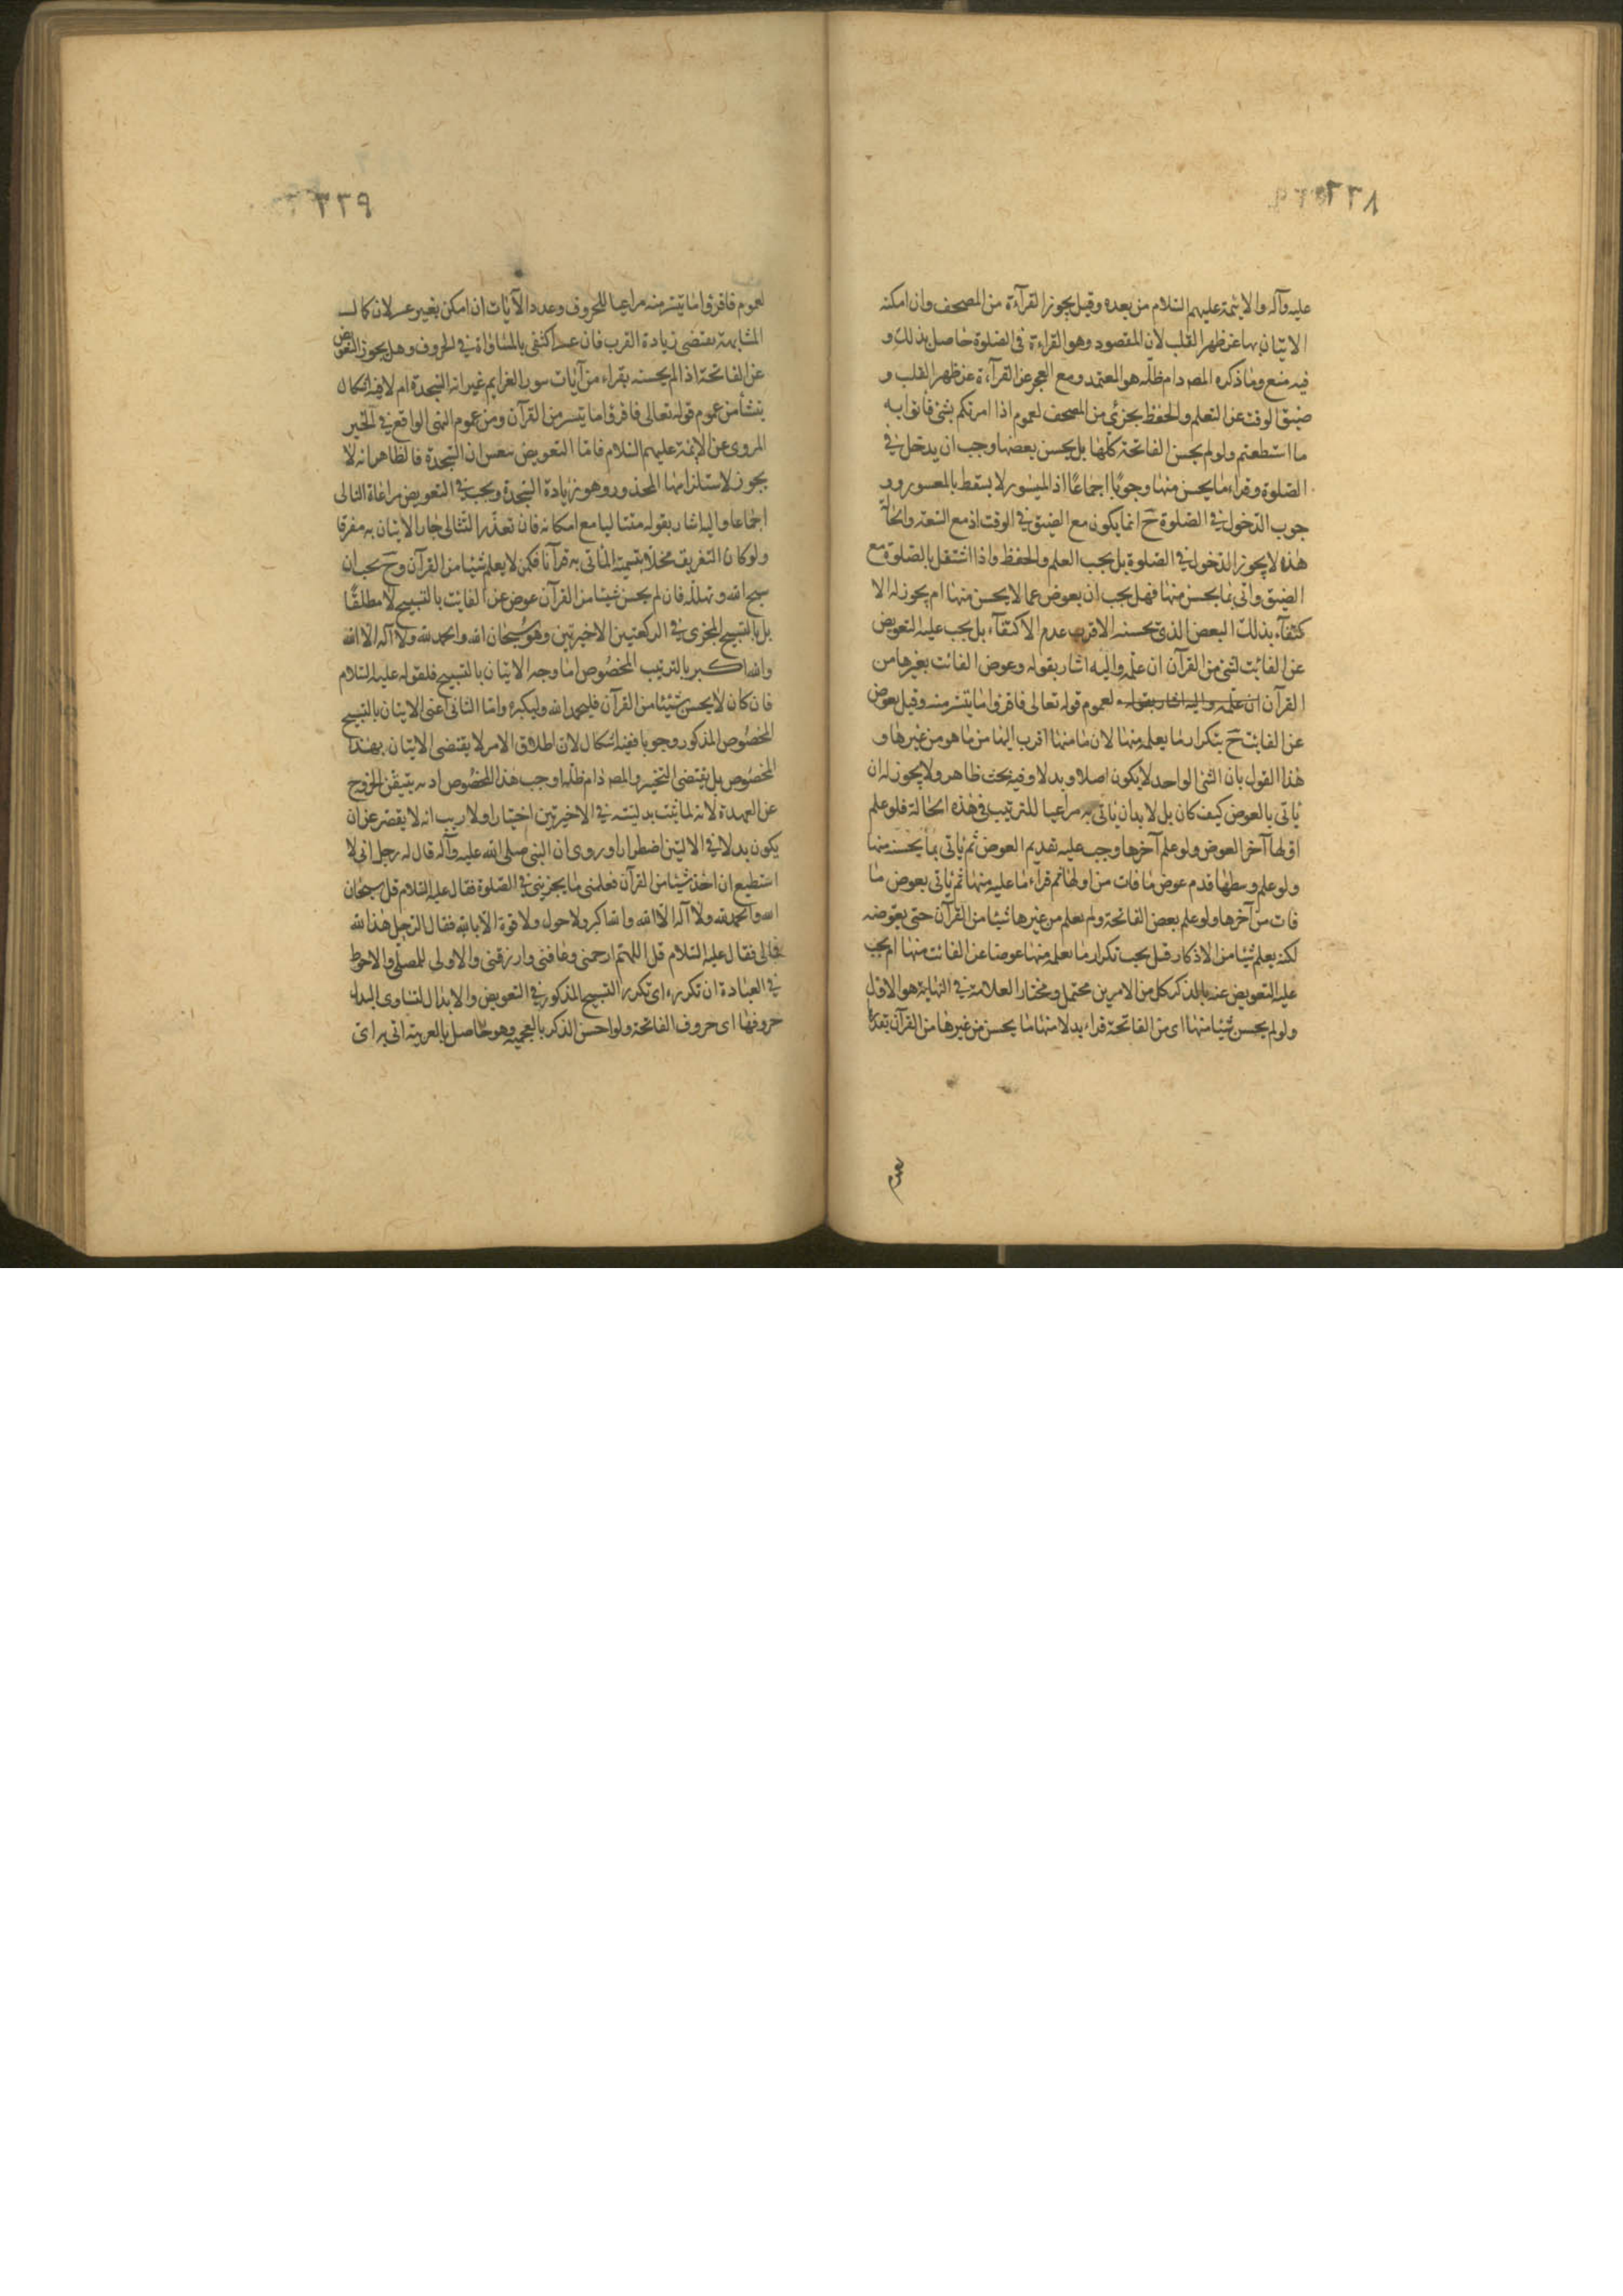 ٢٢٨
عليه وآله والايمة عليهم السلام من بعده وقيل يجوز القرآءة من المصحف وان امكنه
الاتيان بها عن ظهر القلب لان المقصود وهو القراءة فى الصلوة حاصل بذلك و
فيه منع وما ذكره المصه دام ظله هو المعتمد ومع العجز عن القرآءة عن ظهر القلب و
ضيق الوقت عن التعلم والحفظ يجزئ من المصحف لعموم اذا امرتكم بشئ فاتوا به
ما استطعتم ولو لم يحسن الفاتحة كلها بل يحسن بعضها وجب ان يدخل في
الصلوة وقراء ما يحسن منها وجوبا اجماعا اذ الميسور لا يسقط بالمعسور وو
جوب الدخول في الصلوة ح انما يكون مع الضيق في الوقت اذ مع السعة والحالة
هذه لا يجوز الدخول في الصلوة بل يجب العلم والحفظ واذا اشتغل بالصلوة مع
الضيق واتى بما يحسن منها فهل يجب ان يعوض عما لا يحسن منها ام يجوز له الا
كتفآء بذلك البعض الذي يحسنه الاقرب عدم الاكتفآء بل يجب عليه التعويض
عن الفائت لشئ من القرآن ان علمه واليه اشار بقوله وعوض الفائت بغيرها من
القرآن ان علمه واليه اشار بقوله لعموم قوله تعالى فاقرؤا ما تيسر منه وقيل يعوض
عن الفائت ح بتكرار ما يعلم منها لان ما منها اقرب اليها من ما هو من غيرها و
هذا القول بان الشئ الواحد لا يكون اصلا وبدلا وفيه بحث ظاهر ولا يجوز له ان
ياتى بالعوض كيف كان بل لا بد ان ياتى به مراعيا للترتيب في هذه الحالة فلو علم
اولها آخر العوض ولو علم آخرها وجب عليه تقديم العوض ثم ياتى بما يحسنه منها
ولو علم وسطها قدم عوض ما فات من اولها ثم قراء ما عليه منها ثم ياتى بعوض ما
فات من آخرها ولو علم بعض الفاتحة ولم يعلم من غيرها شيئا من القرآن حتى يعوضه
لكنه يعلم شيئا من الاذكار قيل يجب تكرار ما يعلمه منها عوضا عن الفائت منها ام يجب
عليه التعويض عنه بالذكر كل من الامرين محتمل ومختار العلامة في النهاية هو الاول
ولو لم يحسن شيئا منها اى من الفاتحة قراء بدلا منها ما يحسن من غيرها من القرآن بقدرها
لعموم
٢٢٩
لعموم فاقرؤا ما تيسر منه مراعيا للحروف وعدد الآيات ان امكن بغير عسر لان كمال
المشابهة يقتضى زيادة القرب فان عسر اكتفى بالمساواة في الحروف وهل يجوز التعويض
عن الفاتحة اذا لم يحسنه بقراءة من آيات سور العزايم غير اية السجدة ام لا فيه اشكال
ينشأ من عموم قوله تعالى فاقرؤا ما تيسر من القرآن ومن عموم النهى الواقع في الخبر
المروى عن الائمة عليهم السلام فاما التعويض بنفس ان السجدة فالظاهر انه لا
يجوز لاستلزامها المحذور وهو زيادة السجدة ويجب في التعويض مراعاة التالى
اجماعا واليه اشار بقوله متتاليا مع امكانه فان تعذر التتالى جاز الاتيان به مفرقا
ولو كان التفريق مخلا بتسمية الماتى به قرآنا فكمن لا يعلم شيئا من القرآن وح يجب ان
سبح الله وتهلله فان لم يحسن شيئا من القرآن عوض عن الفائت بالتسبيح لا مطلقا
بل بالتسبيح المجزى في الركعتين الاخيرتين وهو سبحان الله والحمد لله ولا اله الا الله
والله اكبر بالترتيب المخصوص اما وجه الاتيان بالتسبيح فلقوله عليه السلام
فان كان لا يحسن شيئا من القرآن فليحمد الله وليكبره واما الثانى اعنى الاتيان بالتسبيح
المخصوص المذكور وجوبا ففيه اشكال لان اطلاق الامر لا يقتضى الاتيان بهذا
المخصوص بل يقتضى التخير والمصه دام ظله اوجب هذا المخصوص اذ به يتيقن الخروج
عن العهدة لانه لما ثبت بدليته في الاخيرتين اختيارا ولا ريب انه لا يقصر عن ان
يكون بدلا في الاليتين اضطرارا وروى ان النبى صلى الله عليه وآله قال له رجل انى لا
استطيع ان اخذ شيئا من القرآن فعلمنى ما يجزينى في الصلوة فقال عليه السلام قل سبحان
الله والحمد لله ولا اله الا الله والله اكبر ولا حول ولا قوة الا بالله فقال الرجل هذا لله
فمالى فقال عليه السلام قل اللهم ارحمنى وعافنى وارزقنى والاولى للمصلى والاحوط
في العبادة ان تكرره اى تكرر التسبيح المذكور في التعويض والابدال لتساوى البدل
حروفها اى حروف الفاتحة ولو احسن الذكر بالعجمية وهو حاصل بالعربية اتى براتى